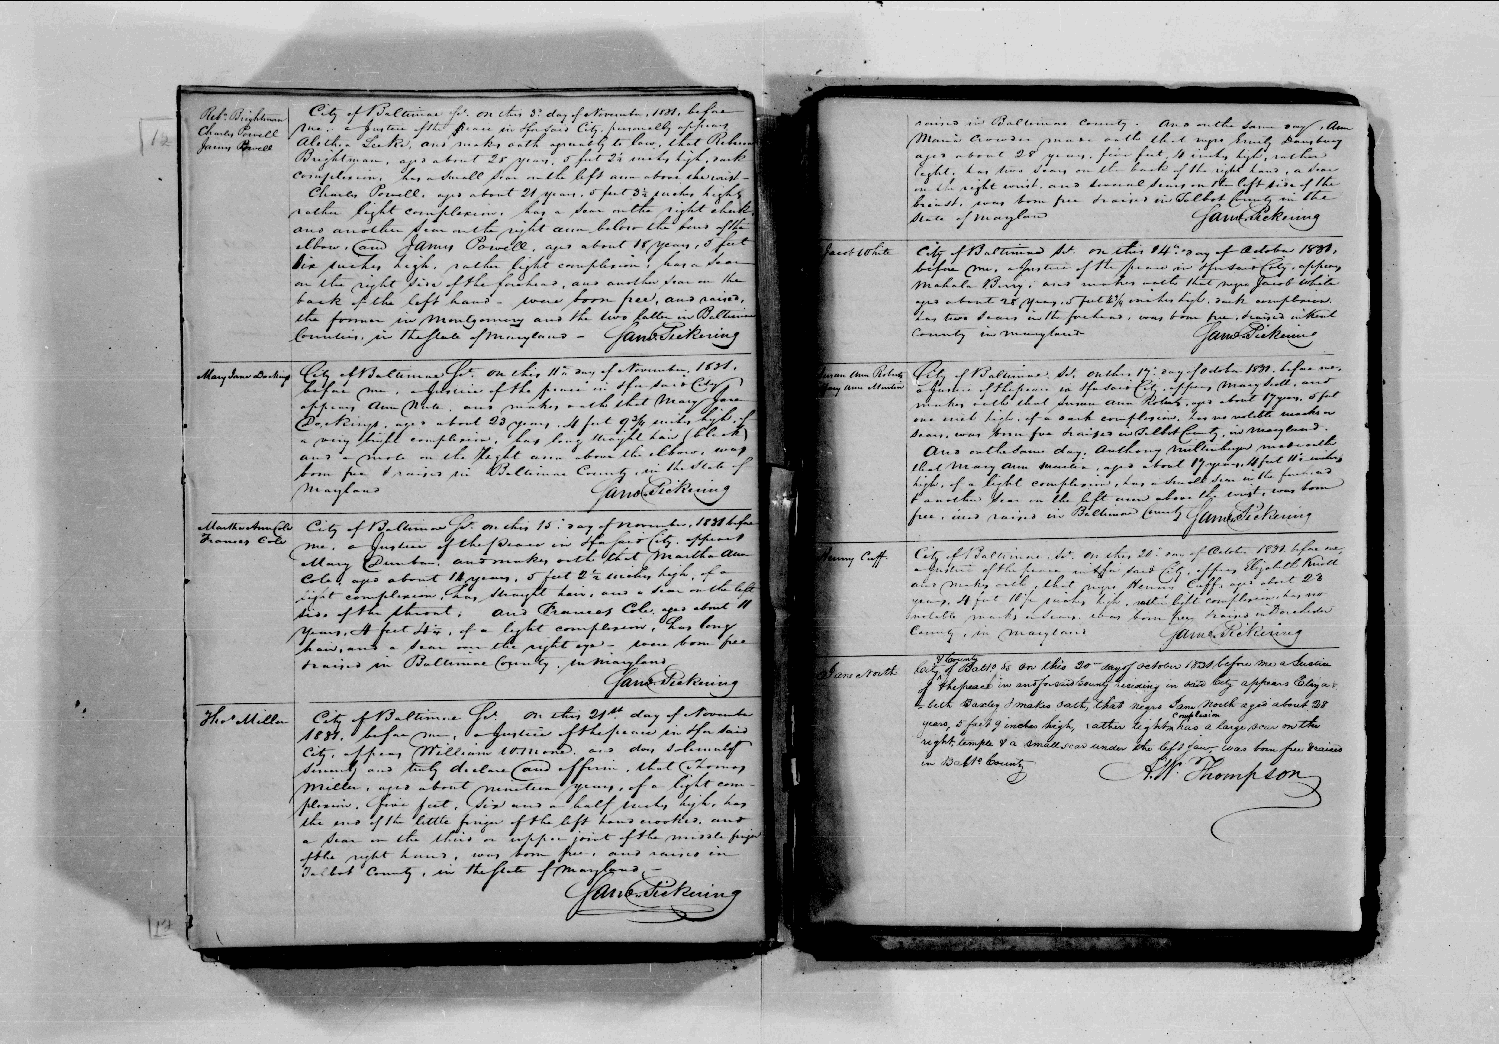 Reb. Brightman
Charles Powell
James Powell
City of Baltimore Sc. on this 3d day of November, 1831, before
me, a Justice of the peace in & for said City, personally appears
Alethea Leeke, and makes oath agreeably to law, that Rebecca
Brightman, aged about 28 years, 5 feet 2½ inches high, dark
complexion, has a small scar on the left arm above the wrist -
Charles Powell, aged about 21 years, 5 feet 3½ inches high,
rather light complexion, has a scar on the right cheek,
and another scar on the right arm below the bend of the
elbow, (and James Powell, aged about 18 years, 5 feet
six inches high, rather light complexion, has a scar
on the right side of the forehead, and another scar on the
back of the left hand - were born free, and raised,
the former in Montgomery and the two latter in Baltimore
Counties, in the State of Maryland - James Pickering
Mary Jane Dockings
City of Baltimore Sc. on this 11th day of November, 1831,
before me, a Justice of the peace in & for said City
appears Ann Nute, and makes oath that Mary Jane
Dockings, aged about 23 years, 4 feet 9¾ inches high, of
a very light complexion, has long straight hair (black)
and a mole on the right arm above the elbow, was
born free & raised in Baltimore County, in the State of
Maryland James Pickering
Martha Ann Cole
Frances Cole
City of Baltimore Sc. on this 15. day of November, 1831 before
me, a Justice of the peace in & for said City, appears
Mary Dunbar, and makes oath that Martha Ann
Cole, aged about 14 years, 5 feet 2½ inches high, of a
light complexion, has straight hair, and a scar on the left
side of the throat; and Frances Cole, aged about 11
years, 4 feet 4¼, of a light complexion, has long
hair, and a scar over the right eye - were born free
& raised in Baltimore County, in Maryland
James Pickering
Thos. Miller
City of Baltimore Sc. on this 21st day of November
1831, before me, a Justice of the peace in & for said
City, appears William and does solemnly
sincerely and truly declare (and affirm, that Thomas
Miller, aged about nineteen years, of a light com-
plexion, five feet, six and a half inches high, has
the end of the little finger of the left hand crooked, and
a scar on the third or upper joint of the middle finger
of the right hand, was born free, and raised in
Talbot County, in the State of Maryland -
James Pickering
raised in Baltimore County. And on the same day, Ann
Maria Crowder made oath that negro Emily Dansbury
aged about 28 years, five feet, 4 inches high, rather
light, has two scars on the back of the right hand, a scar
on the right wrist, and several scars on the left side of the
breast, was born free & raised in Talbot County in the
State of Maryland James Pickering
Jacob White
City of Baltimore Sct. on this 14th day of October 1831,
before me, a Justice of the peace in & for said City, appears
Mahala Berry, and makes oath that negro Jacob White
aged about 28 years, 5 feet 4¾ inches high, dark complexion
has two scars in the forehead, was born free, & raised in Kent
County in Maryland James Pickering
Susan Ann Roberts
Mary Ann Martin
City of Baltimore Sct. on this 17th day of October 1831, before me,
a Justice of the peace in & for said City, appears Mary Scott, and
makes oath that Susan Ann Roberts, aged about 17 years, 5 feet
one inch high, of a dark complexion, has no notable marks or
scars, was born free & raised in Talbot County, in Maryland.
And on the same day, Anthony made oath
that Mary Ann Martin, aged about 17 years, 4 feet 11½ inches
high, of a light complexion, has a small scar in the forehead
& another scar on the left arm above the wrist, was born
free, and raised in Baltimore County James Pickering
Henny Cuff
City of Baltimore Sct. on this 20th day of October 1831, before me,
a Justice of the peace in & for said City, appears Elizabeth
and makes oath, that negro Henny Cuff, aged about 23
years, 4 feet inches high, light complexion, has no
notable marks or scars, was born free & raised in Dorchester
County, in Maryland James Pickering
Jane North
& County
City of Balto. Sc on this 20th day of October 1831, before me a Justice
of the peace in and for said County residing in said City appears Eliza-
-beth Baxley & makes oath, that negro Jane North aged about 28
complexion
years, 5 feet 9 inches high, rather light has a large scar on the
right temple & a small scar under the left Jaw, was born free & raised
in Balto. County
A. W. Thompson